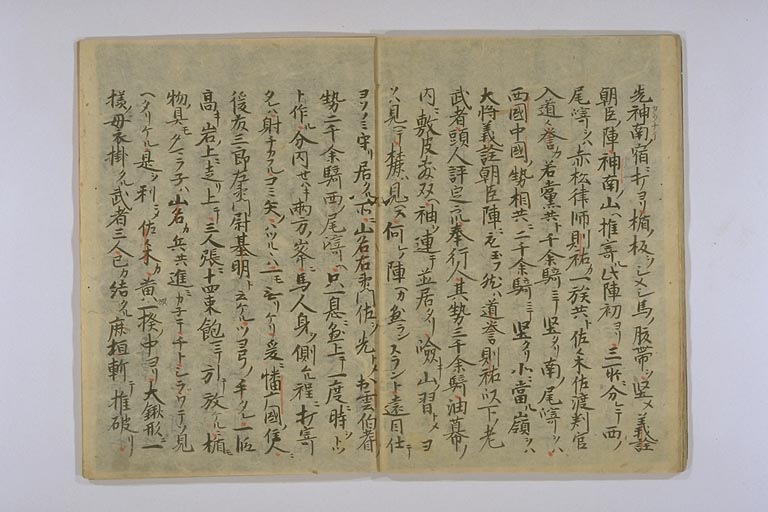 先神南宿ニ打ヨリ楯ノ板ヲシメシ馬ノ腹帯ヲ竪メ義詮
朝臣ノ陣神南山ヘ推寄ル此陣初ヨリ三所ニ分テ西ノ
尾崎ヲハ赤松律師則祐カ一族共ト佐々木佐渡判官
入道々誉カ若黨共ト千余騎ニテ竪タリ南ノ尾崎ヲハ
西國中國ノ勢相共ニ二千余騎ニテ竪タリ小當ル嶺ニハ
大将義詮朝臣陣ヲ玉ヘハ道誉則祐以下ノ老
武者頭人評定衆奉行人其勢三千余騎油幕ノ
内ニ敷皮敷双ヘ袖ヲ連テ並居タリ嶮キ山ノ習トメヨ
ハ見ヘテ麓ハ見ヘス何レノ陣ヘカ懸ラスラント遠目仕テ
ヨソノミ守リ居タル所ニ山名右衛門佐ヲ先トメ出雲伯耆ノ
勢二千余騎西ノ尾崎ヘ只一息ニ懸上テ一度ニ時ヲトツ
ト作ル分内セハキ両方ノ峯ニ馬人身ヲ側ル程ニ打寄
タレハ射チカフルコミ矢ノハツルハ一モ無リケリ爰ニ幡广國ノ住人
後友三郎左衛門尉基明ト云ケルツヨ弓ノ手タレ一段
高キ岩上ニ走リ上テ三人張ニ十四束飽マテ引テ放ケルニ楯モ
物具モタマラネハ山名カ兵共進カネテチトシラウテソ見
ヘタリケル是ヲ利ニメ佐々木カ黄一揆ノ中ヨリ大鍬形ニ一
様ノ母衣掛タル武者三人己カ結タル鹿垣斬テ推破リ